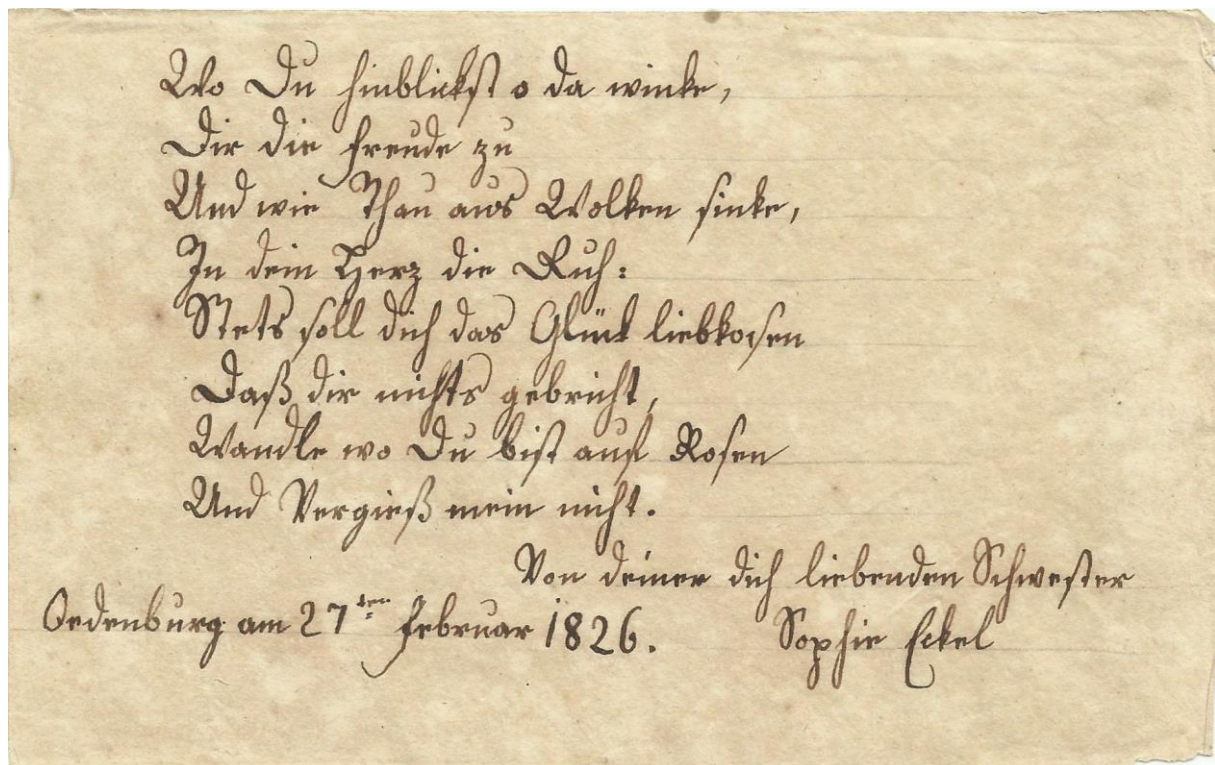 Wo Du hinblickst o da winke,
Dir die Freude zu
Und wie Thau aus Wolken sinke,
In dein Herz die Ruh:
Stets soll dich das Glück liebkosen
Daß dir nichts gebricht,
Wandle wo Du bist auf Rosen
Und Vergieß mein nicht.
Von deiner dich liebenden Schwester
Oedenburg am 27ten Februar 1826. Sophie Eckel